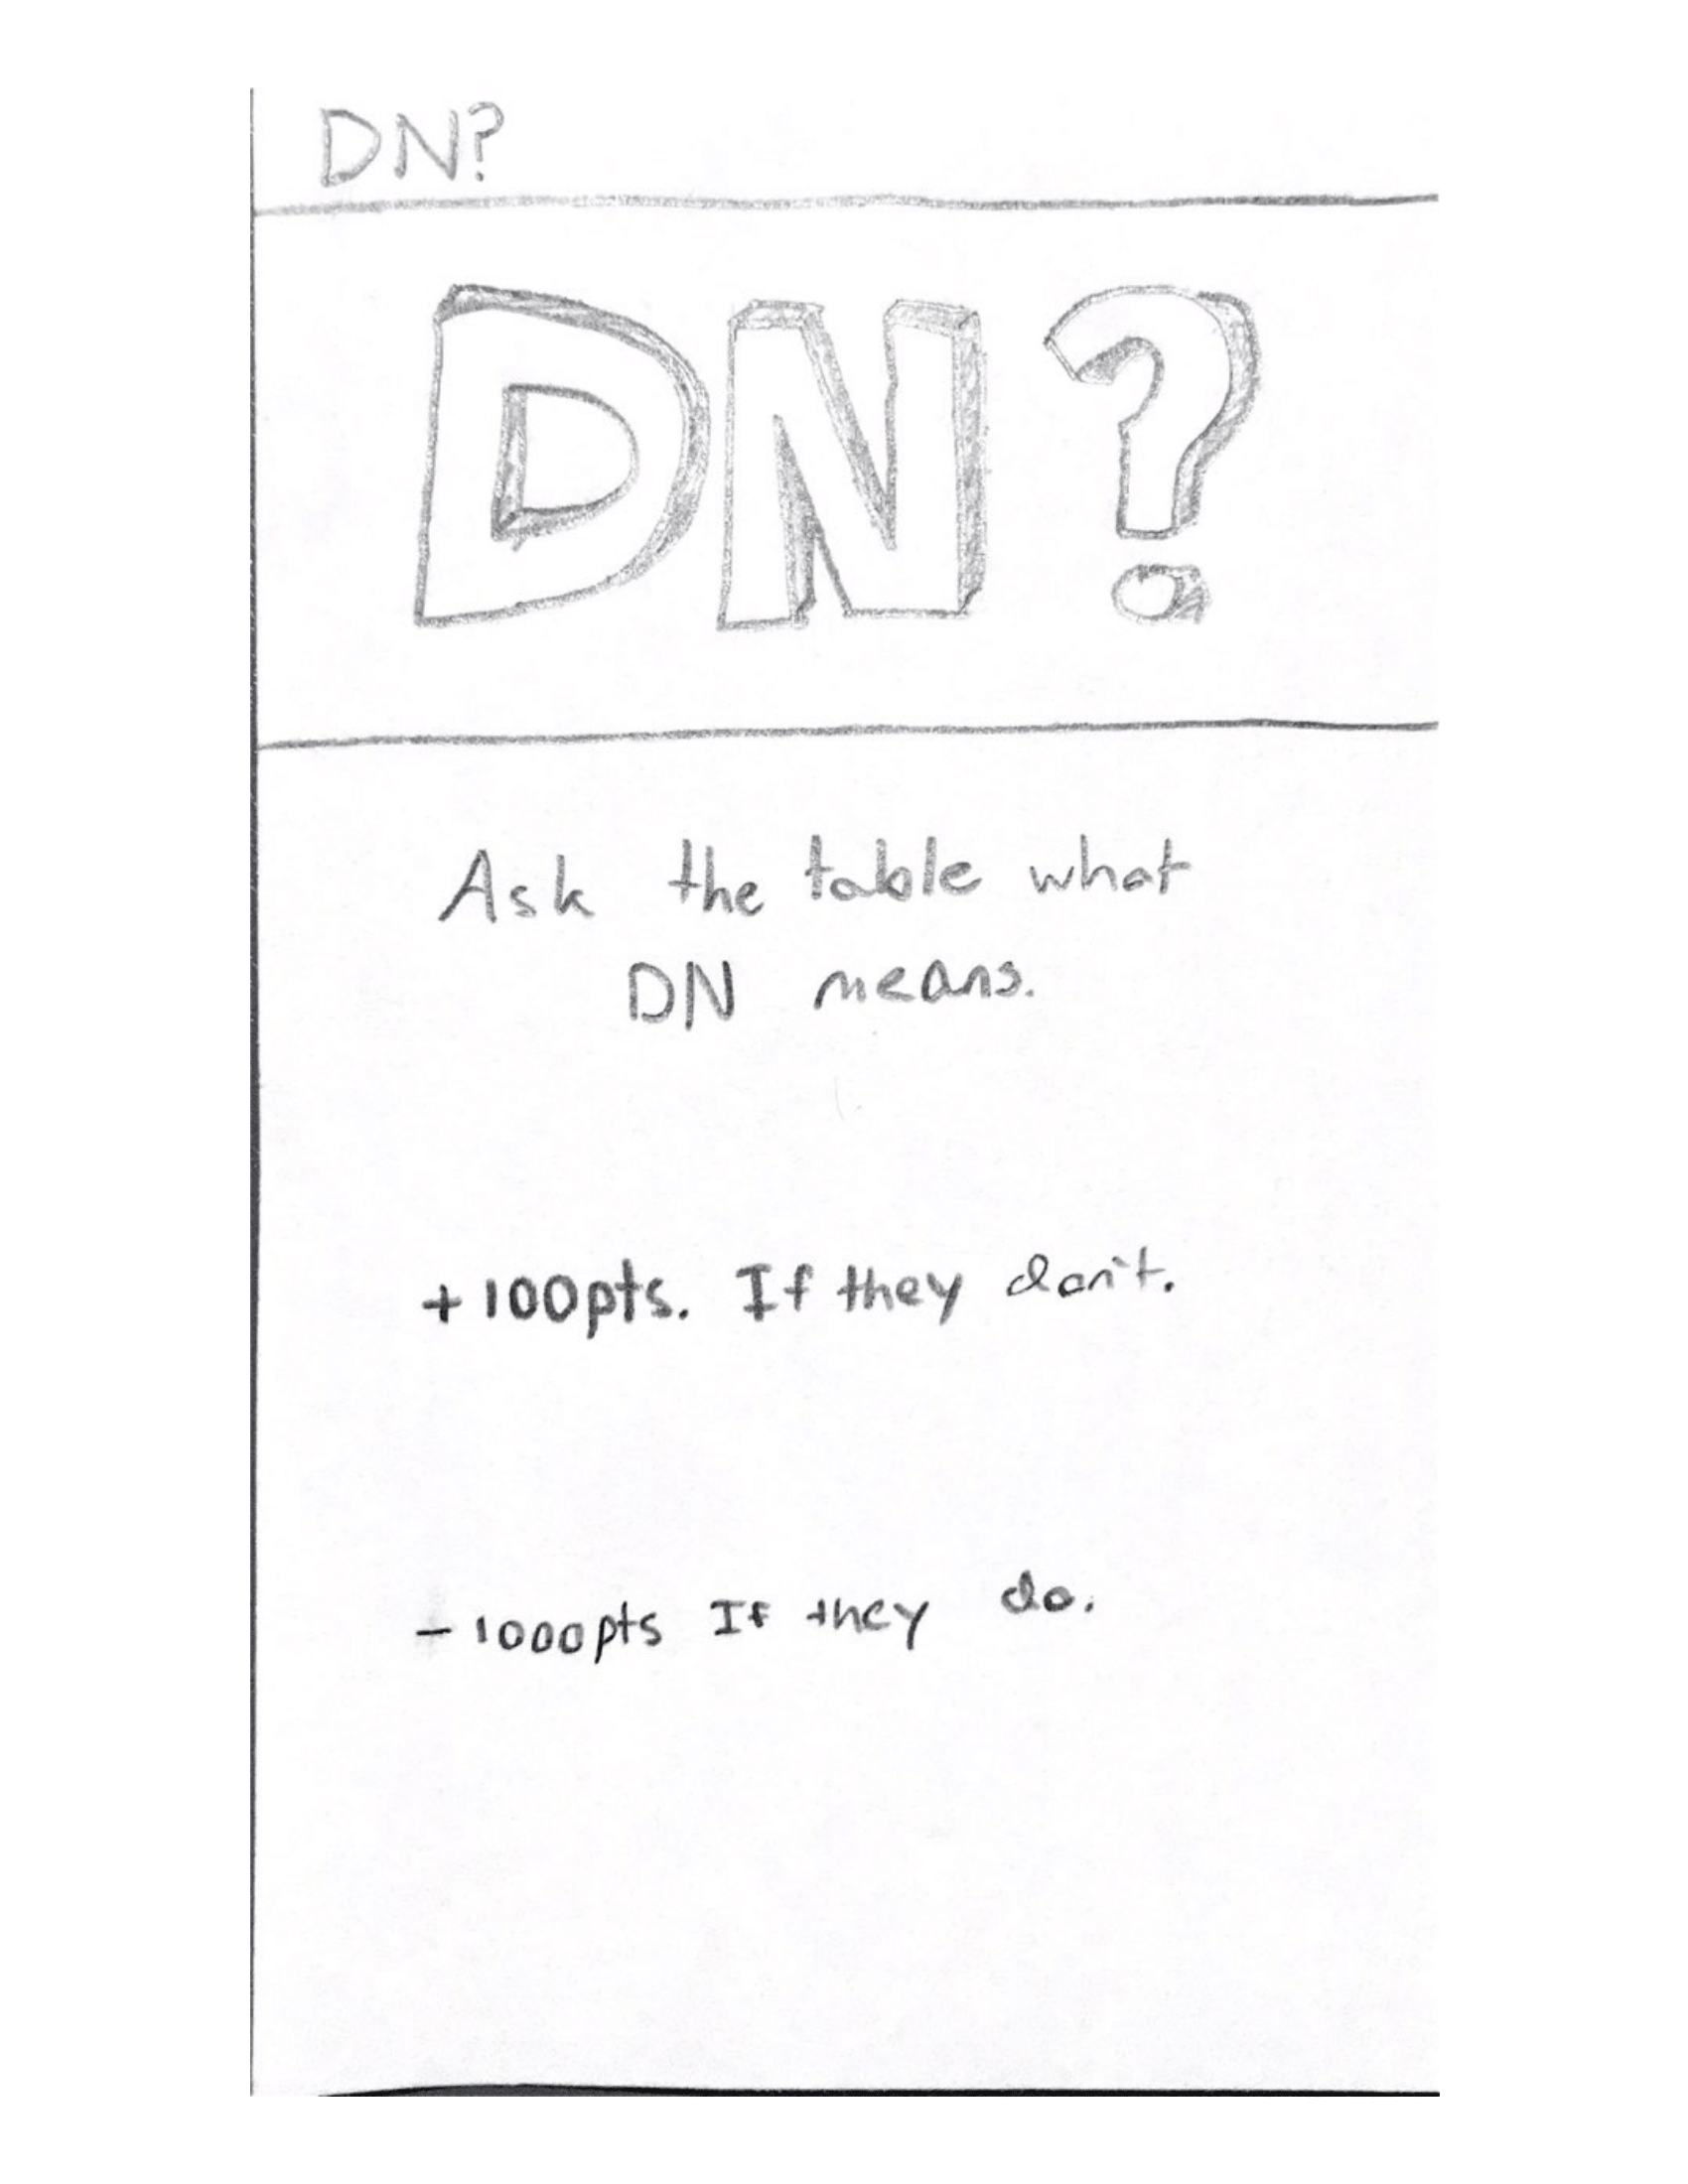 DN?
DN?
Ask the table what
DN means.
+100pts. If they don't.
-1000pts If they do.